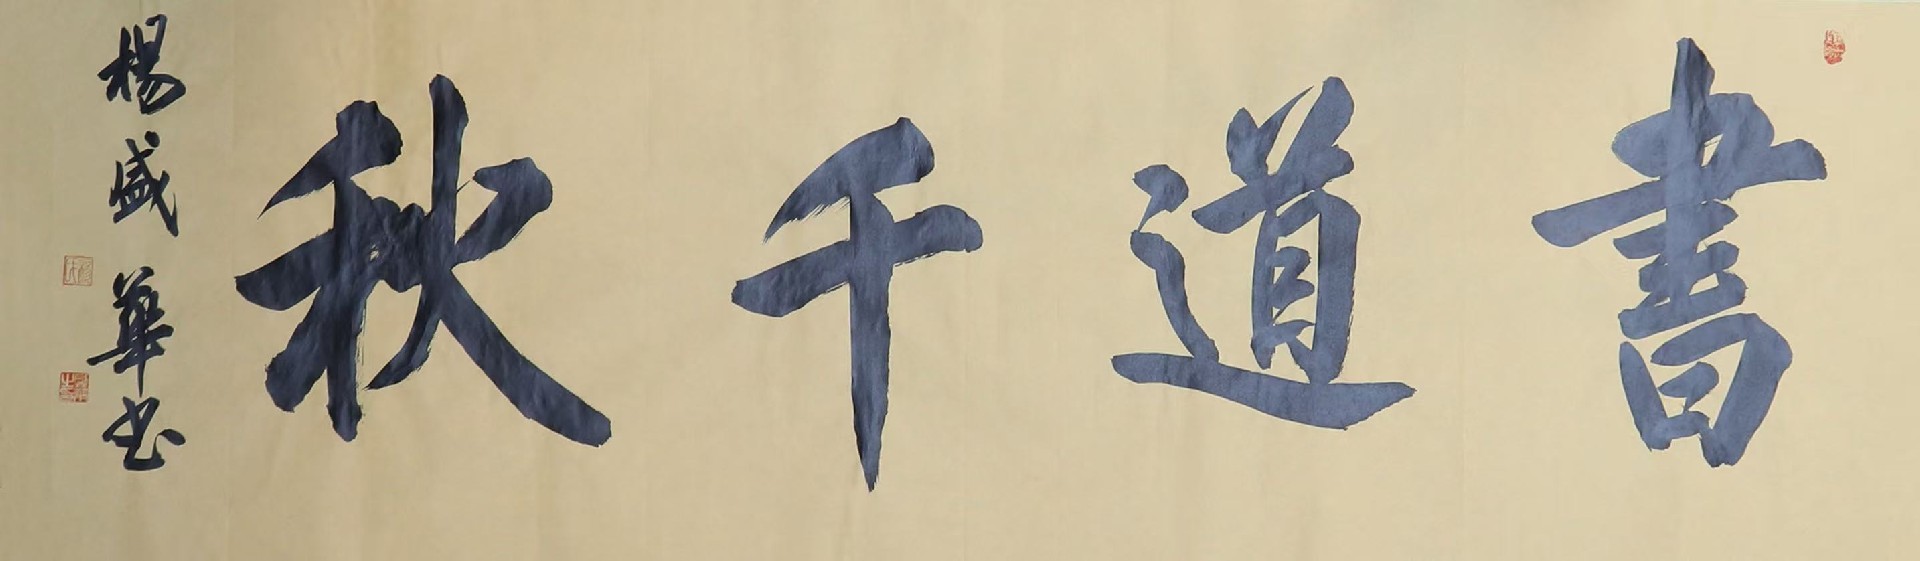 書道千秋
楊盛華书